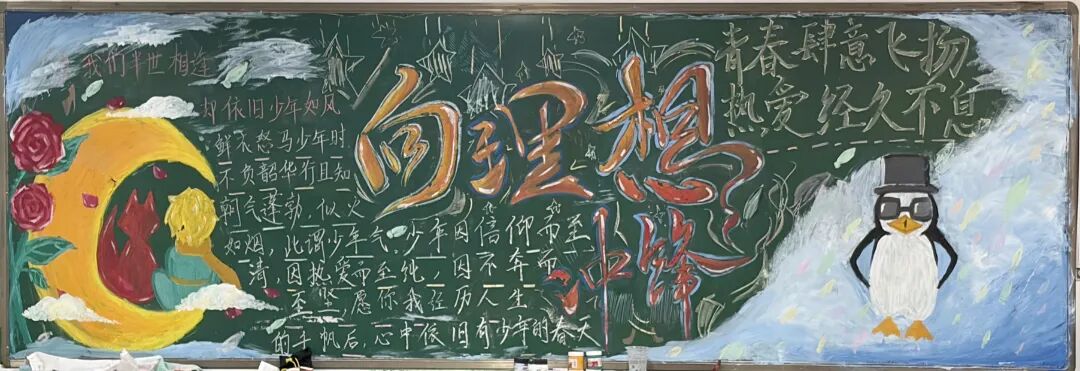 我们半世相逢
却依旧少年如风
鲜衣怒马少年时
不负韶华行且知
朝气蓬勃,似火
如烟,此谓少年气。少年因信仰而至
清,因热爱而至纯,因不奔而
至坚,愿你我在历人生
的千帆后,心中依旧有少年的春天
向理想
冲锋
青春肆意飞扬
热爱经久不息